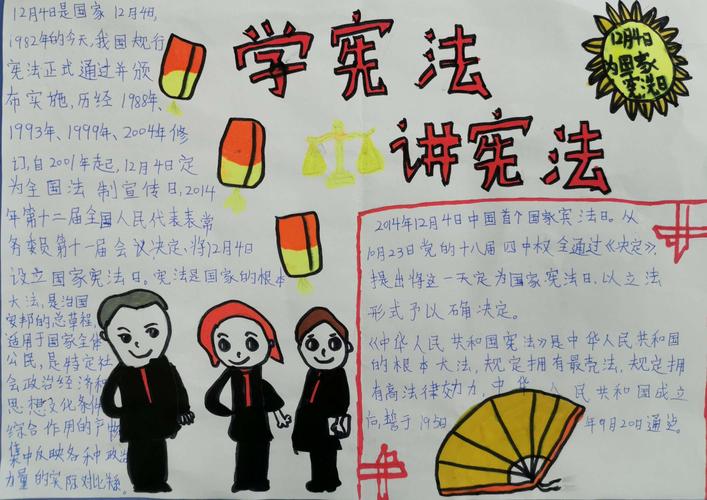 学宪法
讲宪法
12月4日
为国家
宪法日
12月4日是国家 12月4日,
1982年的今天,我国现行
宪法正式通过并颁
布实施,历经1988年、
1993年、1999年、2004年修
订,自2001年起,12月4日定
为全国法制宣传日,2014
年第十二届全国人民代表表常
务委员第十一届会议决定、将12月4日
设立国家宪法日。宪法是国家的根本
大法,是治国
安邦的总章程,
适用于国家全体
公民,是特定社
会政治经济和
思想文化条件
综合作用的产物
集中反映各种政治
力量的实际对比
2014年12月4日中国首个国家宪法日。从
10月23日党的十八届四中权全通过《决定》,
提出将这一天定为国家宪法日,以立法
形式予以确决定。
《中华人民共和国宪法》是中华人民共和国
的根本大法,规定拥有最
法,规定拥
有高法律效力,中华人民共和国成立
于195
年9月20通